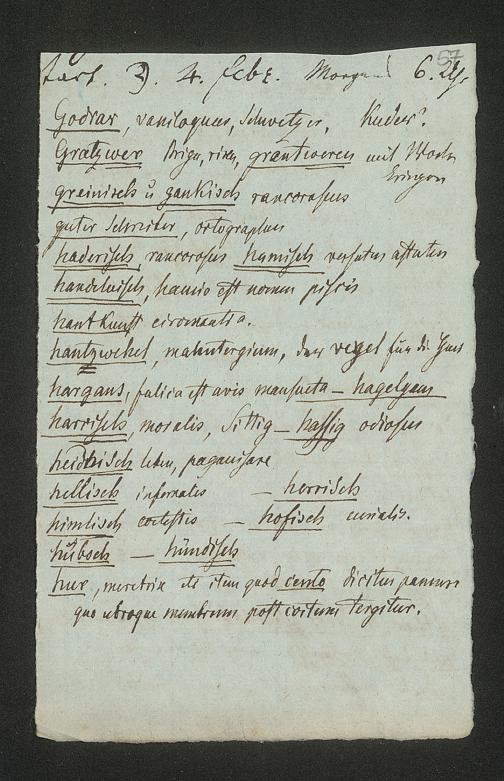 57
3. 4. febr. Morgens 6. Uhr.
Godrar, vaniloquus, Schwetzer,
Gratzwer Briga, rixa, grantweren mit Worten
grainisch u zankisch rancorosus
guter Schreiber, ortographus
haderisch, rancorosus hamisch versutus astutus
est nomen piscis
hant kunst ciromantia.
hantzwehel, manutergium, für die
hargans, fulica est avis mansueta – hagelgans
harrisch, moralis, Sittig – hassig odiosus
heidnisch leben, paganisare
hellisch infernalis – herrisch
himlisch celestis – hofisch curialis.
hubsch – hündisch
hur, meretrix item quod cento dicitur pannus
quo utroque membrum post coitum tergitur.